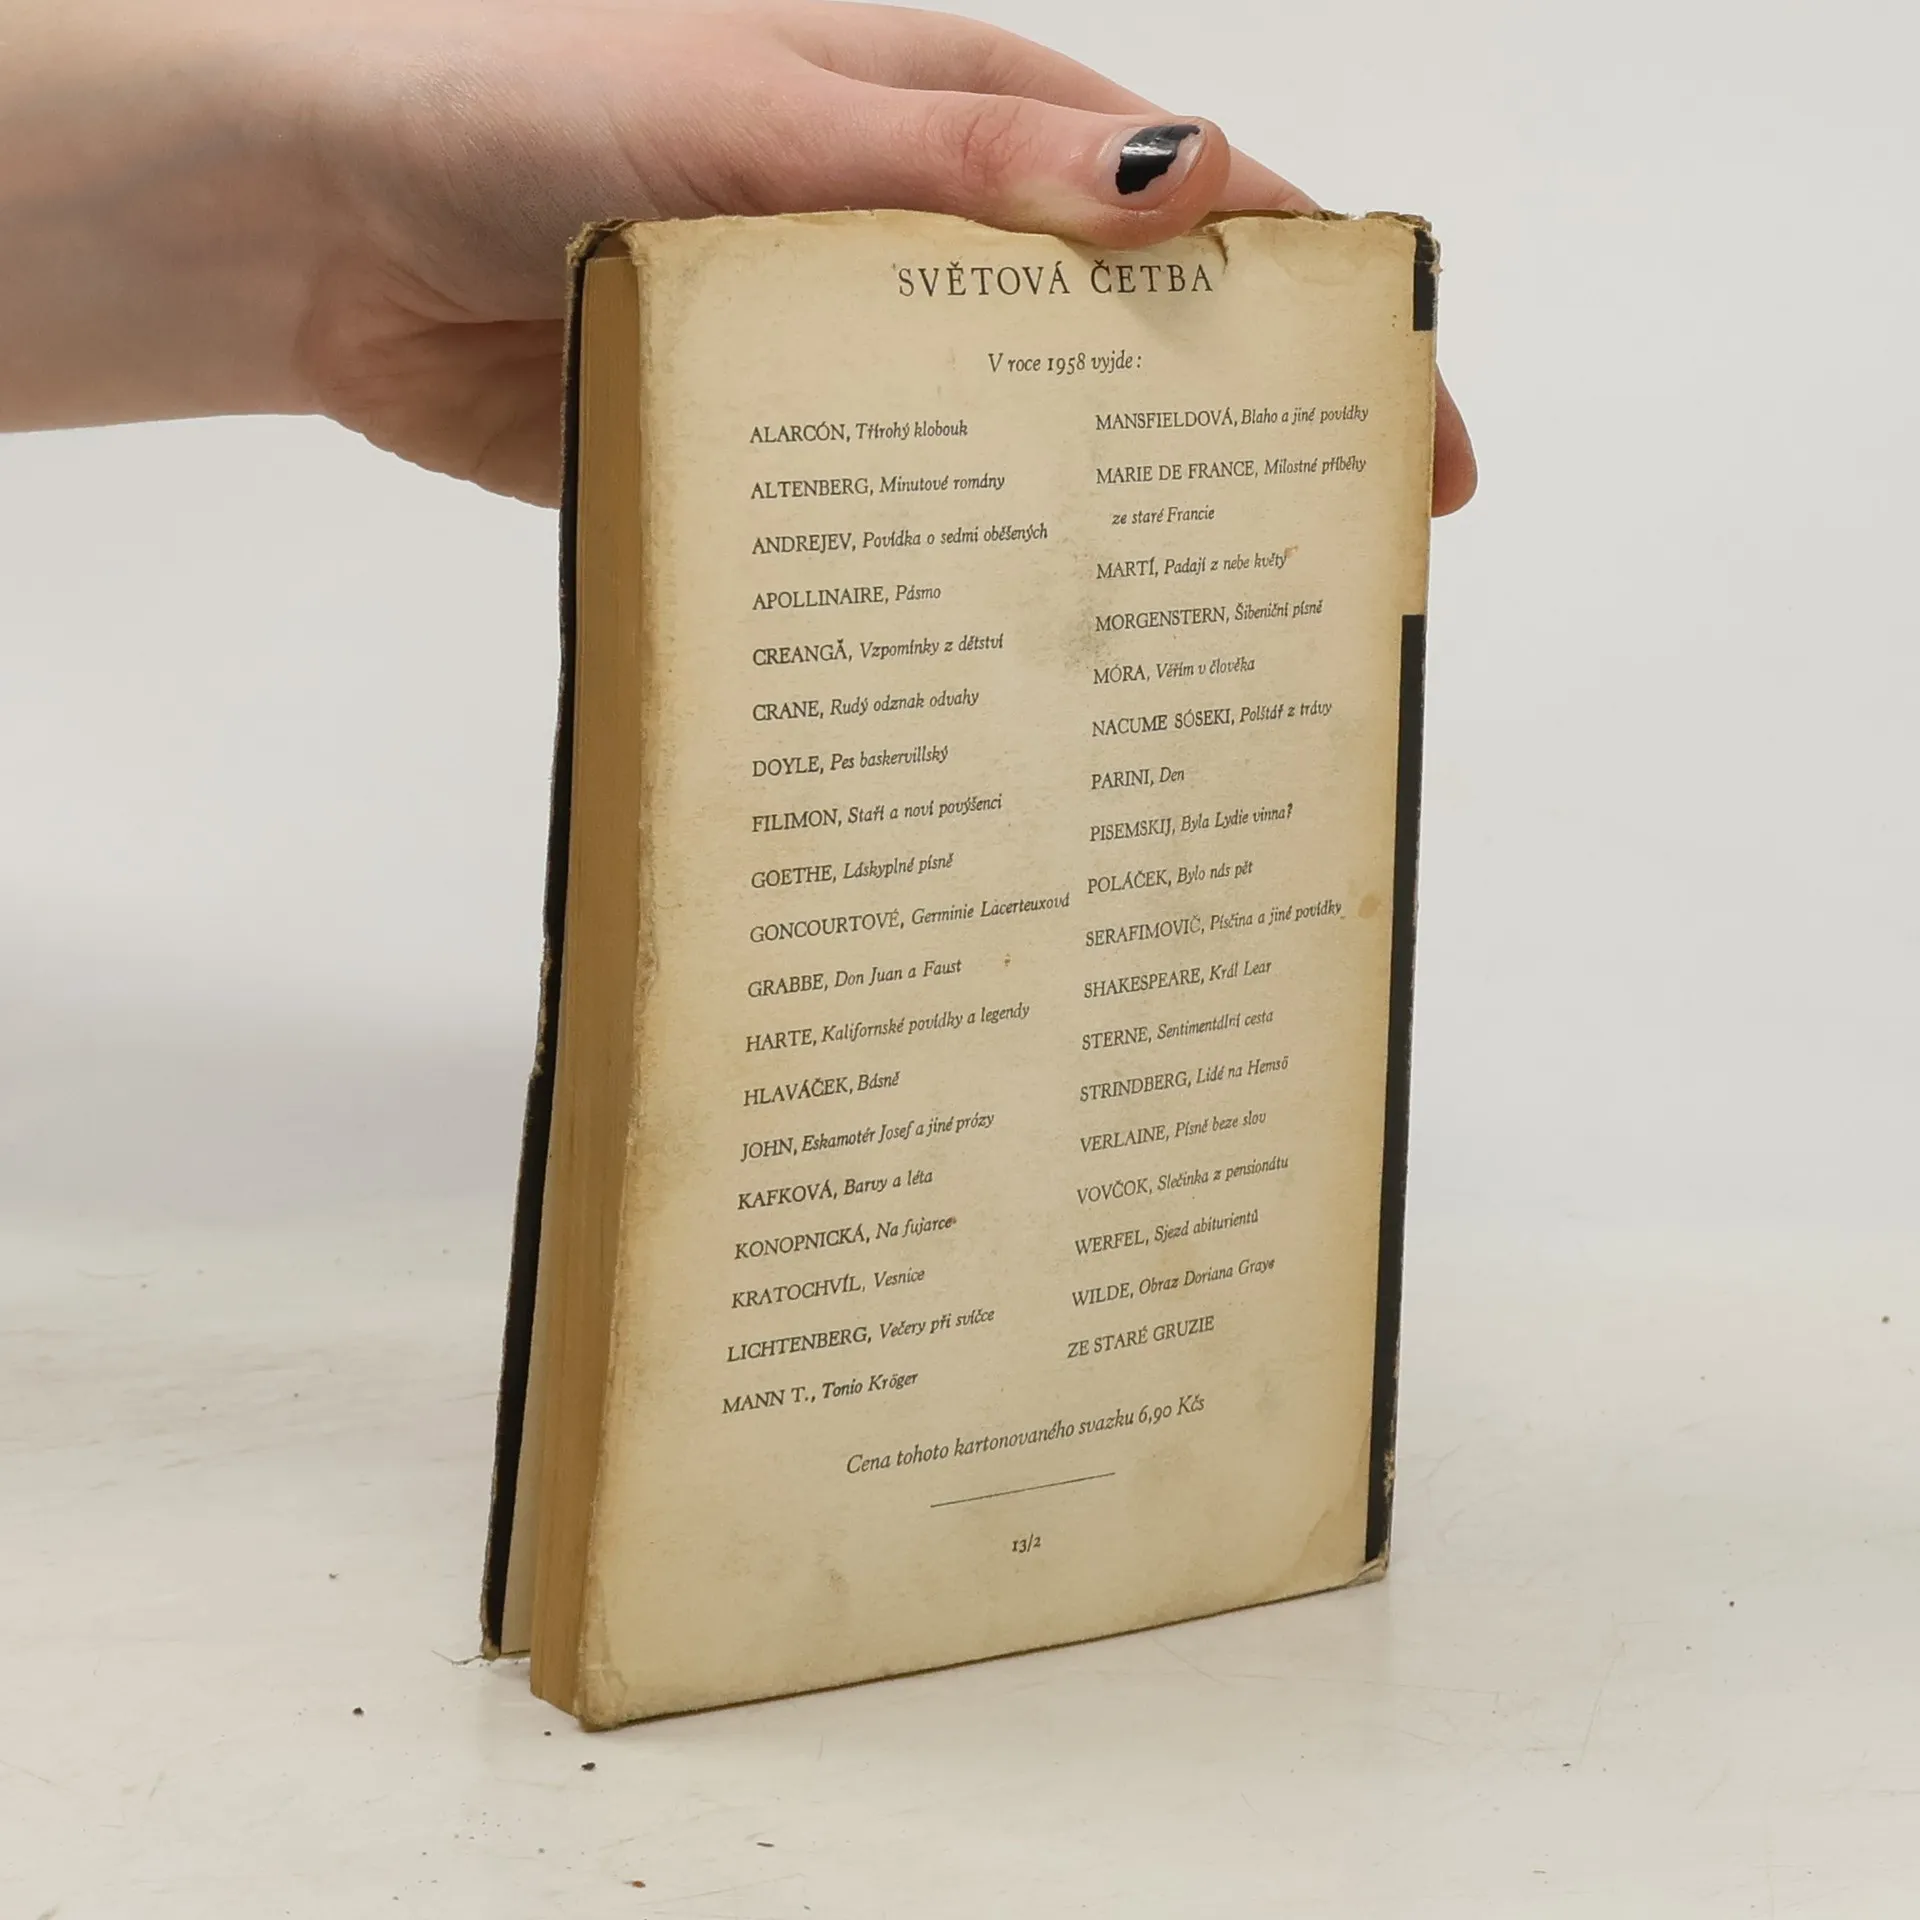 SVĚTOVÁ ČETBA
V roce 1958 vyjde:
ALARCÓN, Třírohý klobouk
ALTENBERG, Minutové romány
ANDREJEV, Povídka o sedmi oběšených
APOLLINAIRE, Pásmo
CREANGĂ, Vzpomínky z dětství
CRANE, Rudý odznak odvahy
DOYLE, Pes baskervillský
FILIMON, Staří a noví povýšenci
GOETHE, Láskyplné písně
GONCOURTOVÉ, Germinie Lacerteuxová
GRABBE, Don Juan a Faust
HARTE, Kalifornské povídky a legendy
HLAVÁČEK, Básně
JOHN, Eskamotér Josef a jiné prózy
KAFKOVÁ, Barvy a léta
KONOPNICKÁ, Na fujarce
KRATOCHVÍL, Vesnice
LICHTENBERG, Večery při svíčce
MANN T., Tonio Kröger
MANSFIELDOVÁ, Blaho a jiné povídky
MARIE DE FRANCE, Milostné příběhy
ze staré Francie
MARTÍ, Padají z nebe květy
MORGENSTERN, Šibeniční písně
MÓRA, Věřím v člověka
NACUME SÓSEKI, Polštář z trávy
PARINI, Den
PISEMSKIJ, Byla Lydie vinna?
POLÁČEK, Bylo nás pět
SERAFIMOVIČ, Písčina a jiné povídky
SHAKESPEARE, Král Lear
STERNE, Sentimentální cesta
STRINDBERG, Lidé na Hemsö
VERLAINE, Písně beze slov
VOVČOK, Slečinka z pensionátu
WERFEL, Sjezd abiturientů
WILDE, Obraz Doriana Graye
ZE STARÉ GRUZIE
Cena tohoto kartonovaného svazku 6,90 Kčs
13/2